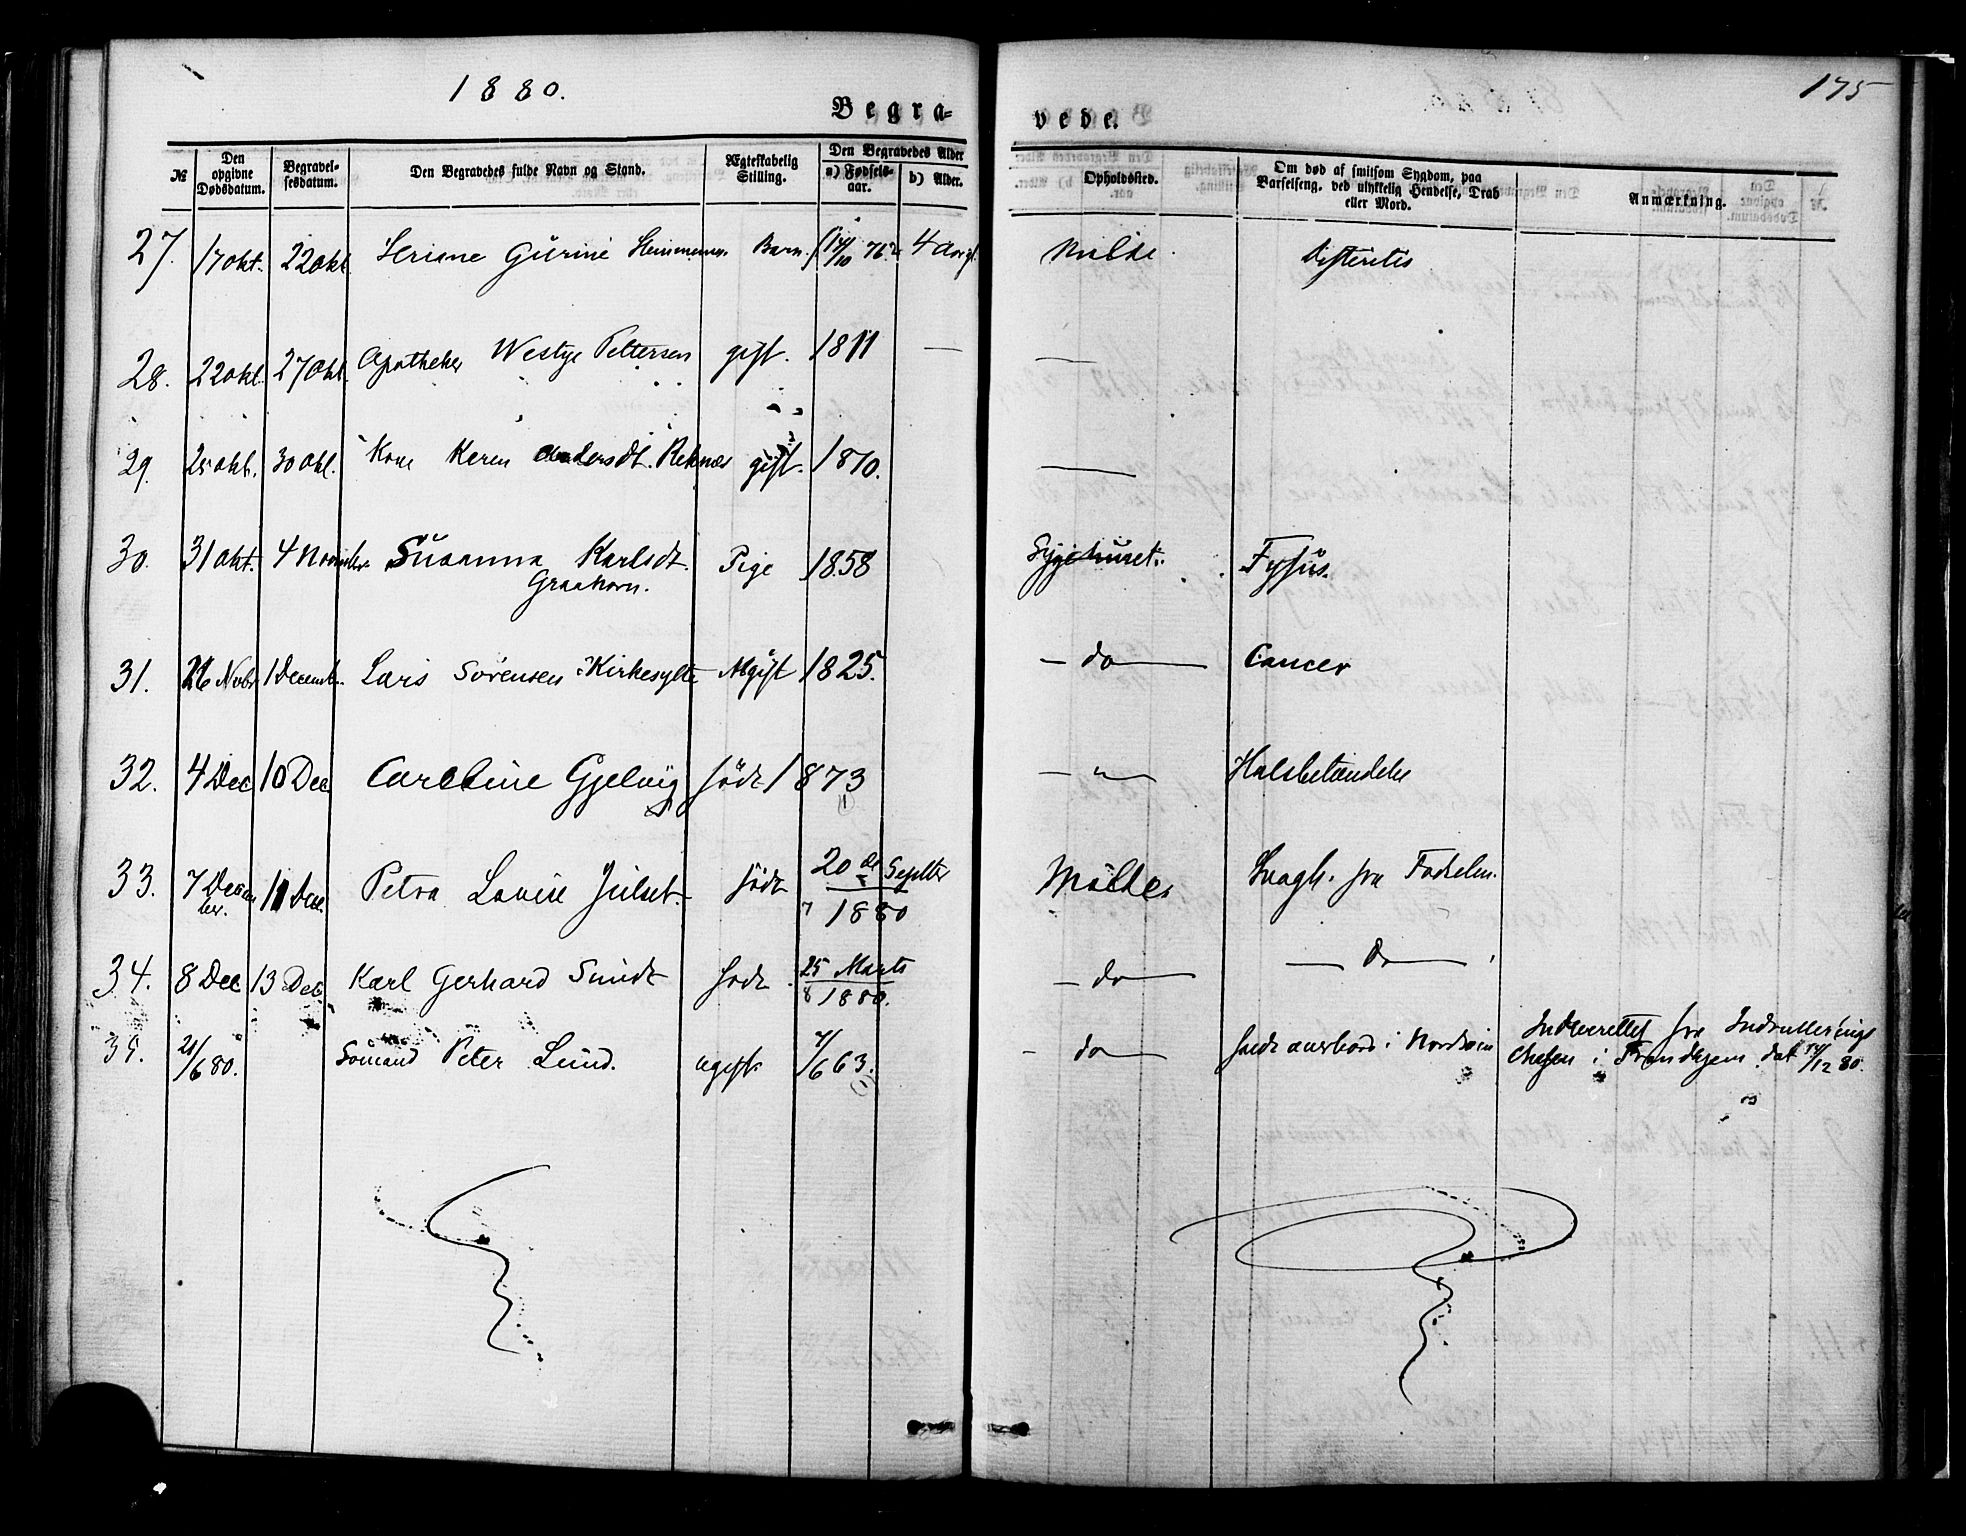 1880.
175
Begra- vede.
№ Den opgivne Dødsdatum. Begravel-sesdatum. Den Begravedes fulde Navn og Stand. Ægteskabelig Stilling. Den Begravedes Alder a) Fødsels-aar. b) Alder. Opholdssted. Om død af smitsom Sygdom, paa Barselseng, ved ulykkelig Hendelse, Drab eller Mord. Anmærkning.
27. 17 Okt. 22 Okt. Gurine Barn. 14/10 76 4 Molde. Difteritis
28. 22 Okt. 27 Okt. Apotheker Westye Pettersen gift. 1811 — —
29. 25 Okt. 30 Okt. Kone Karen Andersdt. Reknæs gift. 1810. —
30. 31 Okt. 4 November Susanna Karlsdt. Pige 1858 Sygehuset. Tyfus.
Graahorn.
31. 26 Novbr 1 Decemb. Lars Sørensen Kirkesylte 1825. — do — Cancer
32. 4 Dec 10 Dec Caroline Gjelvig født 1873 — " — Halsbetændelse
33. 7 Decem 11 Dec. Petra Lovise Julset. født 20de Septbr Molde Svagh. fra Fødselen.
ber. 1880
34. 8 Dec 13 Dec Karl Gerhard Smidt født 25 Marts — do — — Do —
1880.
35. 21/6 80. Sömand Peter Lund. ugift. 7/6 63. — do — faldt overbord i Nordsøen Indberettet fra Indrullerings
Chefen i Trondhjem dat 14/12 80.